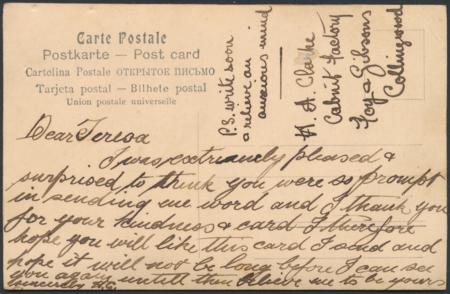 Carte Postale
Postkarte — Post card
Cartolina Postale ОТКРЫТОЕ ПИСЬМО
Tarjeta postal — Bilhete postal
Union postale universelle
P.S. write soon
& relieve an
anxious mind
H. A. Clarke
Cabinit Factory
Foy & Gibsons
Collingwood
Dear Teresa
I was extriemely pleased &
surprised to think you were so prompt
in sending me word and I thank you
for your kindness & card I therefore
hope you will like this card I send and
hope it will not be long before I can see
you again untill then believe me to be yours
sincerely